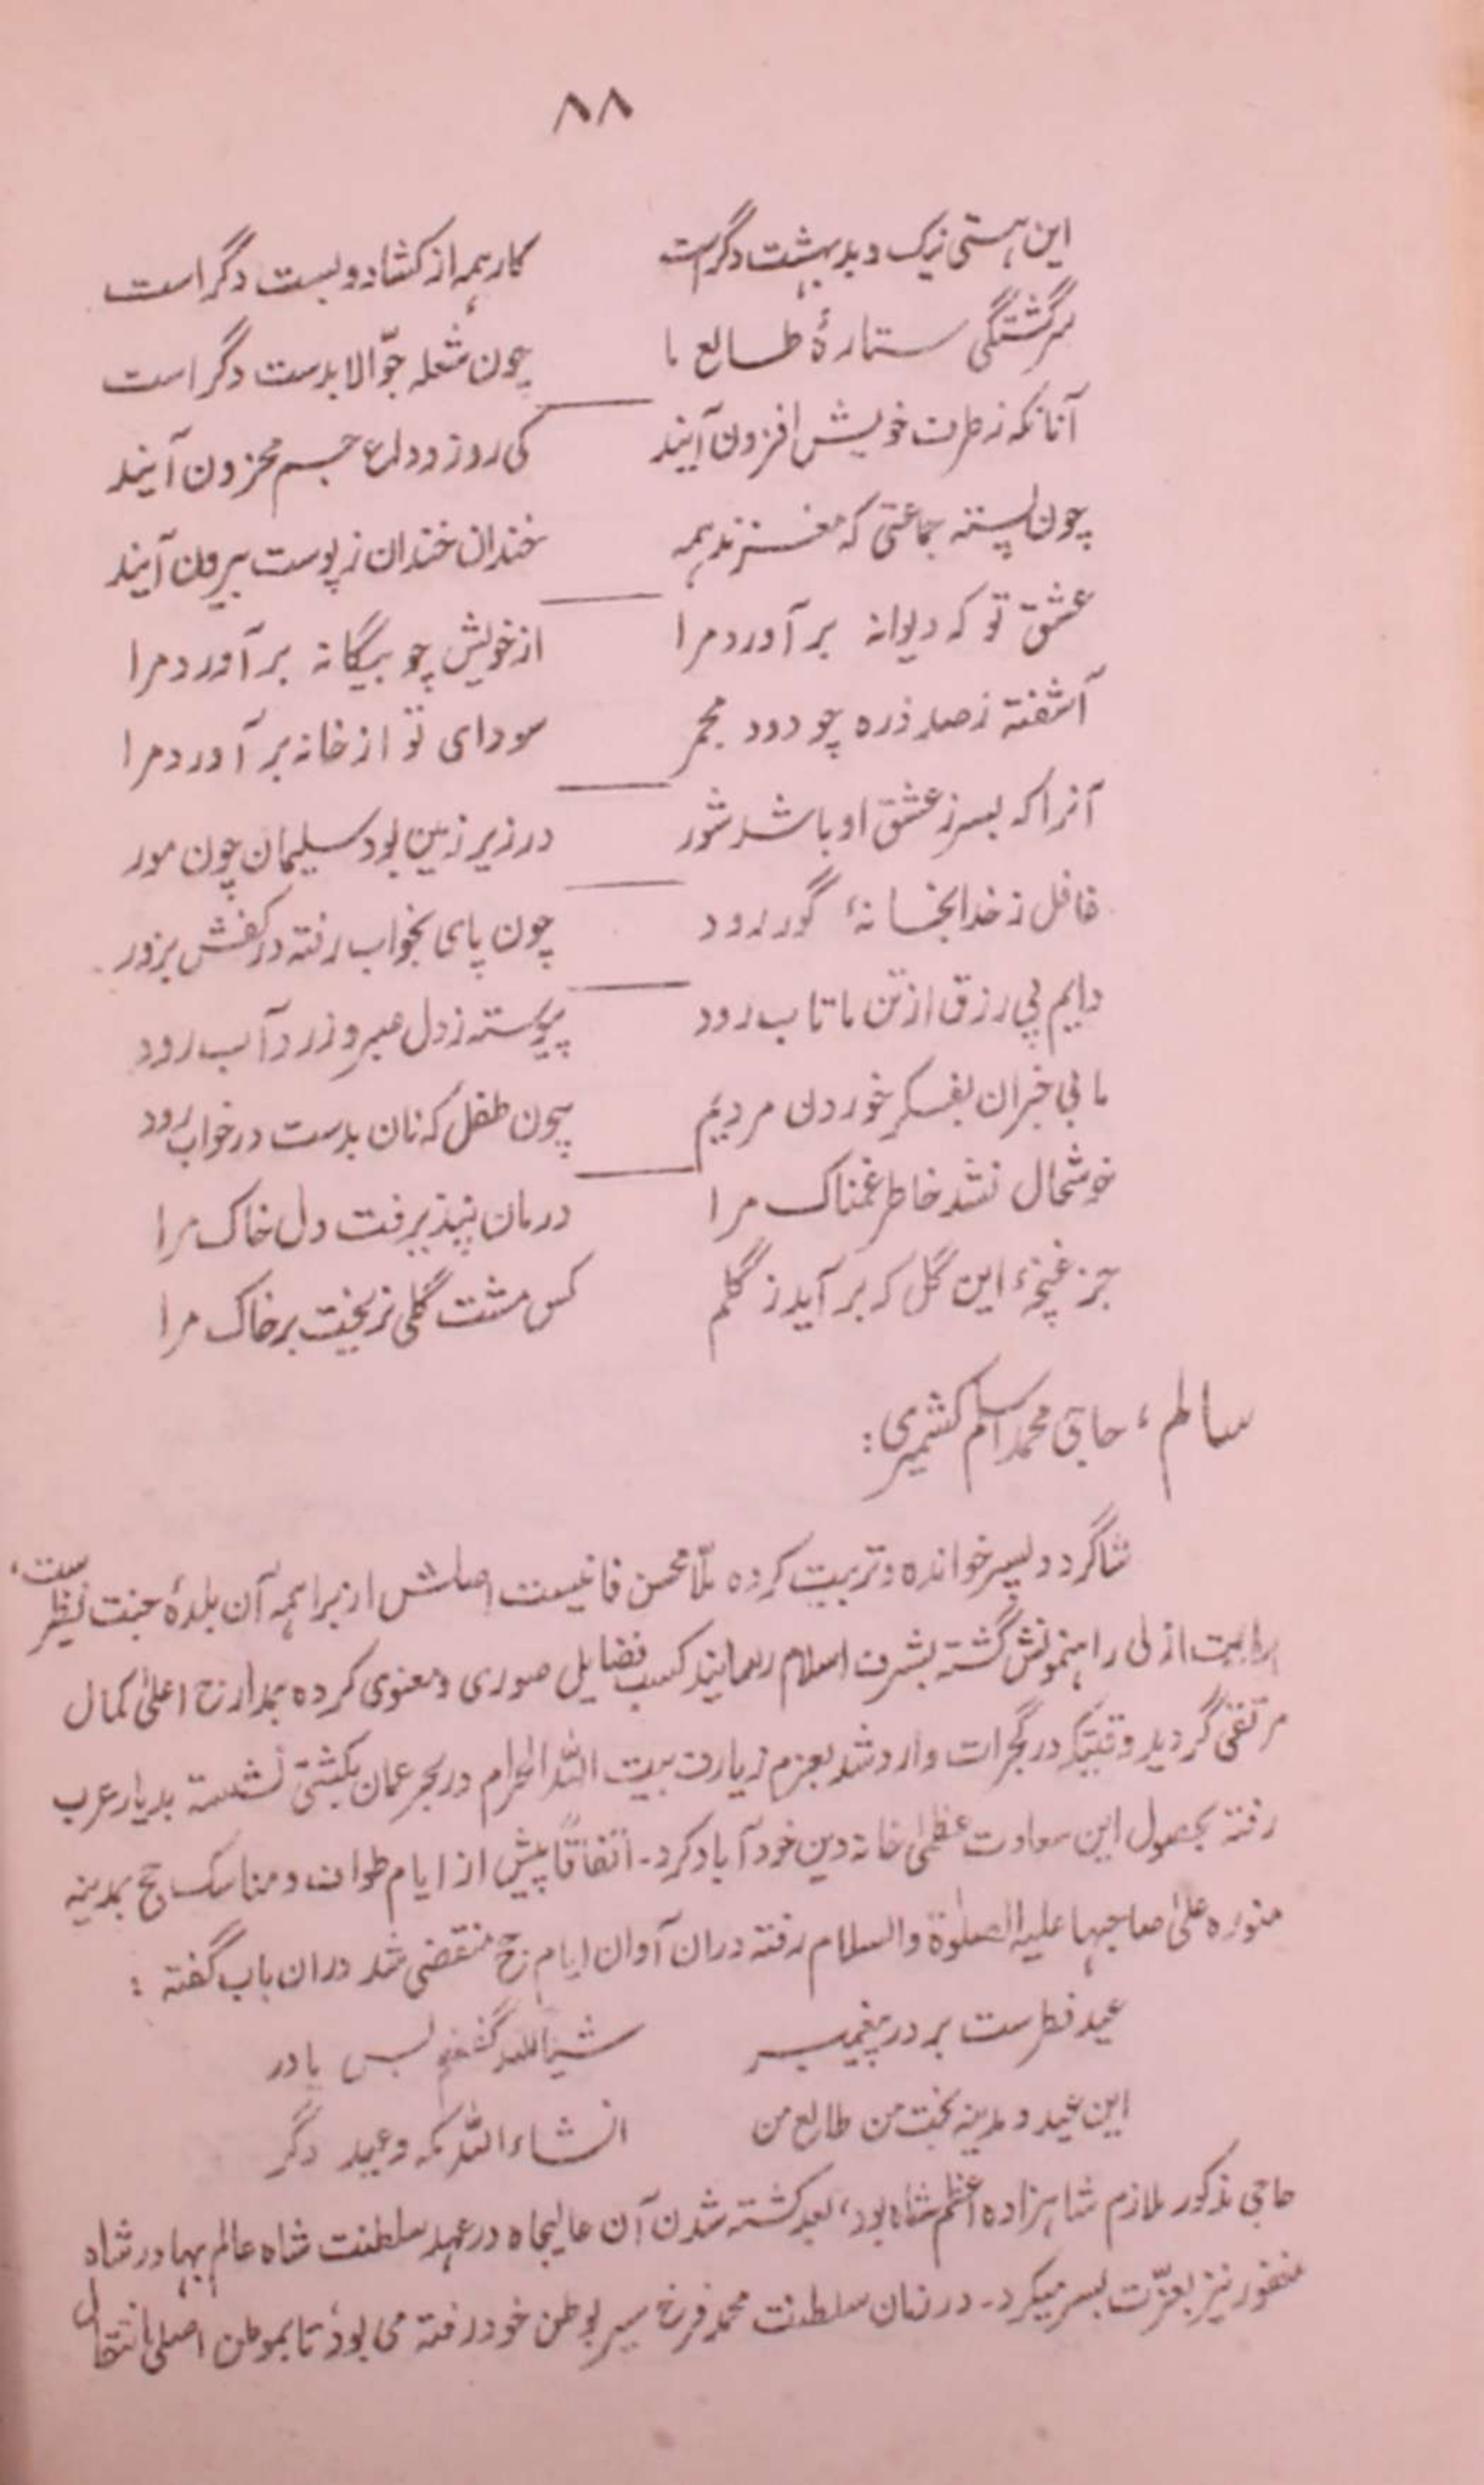 ۸۸
این ہستی نیک و بد بہشت دگرست کار ہمہ از کشاد و بست دگر است
سرگشتگی ستارۂ طالع ما چون شعلہ جوّالا بدست دگر است
آنانکہ ز ظرف خویش افزون آیند کی روز وداع جسم محزون آیند
چون پستہ جماعتی کہ مغزند ہمہ خندان خندان ز پوست بیرون آیند
عشق تو کہ دیوانہ بر آورد مرا از خویش چو بیگانہ بر آورد مرا
آشفتہ ز صد ذرہ چو دود مجمر سودای تو از خانہ بر آورد مرا
آنرا کہ بسر ز عشق او باشد شور در زیر زمین بود سلیمان چون مور
غافل ز خدا بخانۂ گور رود چون پای بخواب رفتہ در کفش بزور
دایم پی رزق از تن ما تاب رود پیوستہ ز دل صبر و ز رد آب رود
ما بی خبران بفکر خوردن مردیم چون طفل کہ نان بدست در خواب رود
خوشحال نشد خاطر غمناک مرا درمان نپذیرفت دل خاک مرا
جز غنچۂ این گل کہ بر آید ز گلم کس مشت گلی نریخت بر خاک مرا
سالم، حاجی محمد اسلم کشمیری:
شاگرد و پسر خواندہ و تربیت کردہ ملّا محسن فانیست اصلش از براہمہ آن بلدۂ جنت نظیر ست،
ہدایت ازلی راہنمونش گشتہ بشرف اسلام رسانید کسب فضایل صوری و معنوی کردہ بمدارج اعلیٰ کمال
مرتقی گردید وقتیکہ در گجرات وارد شد بعزم زیارت بیت اللہ الحرام در بحر عمان بکشتی نشستہ بدیار عرب
رفتہ بحصول این سعادت عظمیٰ خانہ دین خود آباد کرد۔ اتفاقاً پیش از ایام طواف و مناسک حج بمدینہ
منورہ علیٰ صاحبہا علیہ الصلوٰۃ والسلام رفتہ دران آوان ایام حج منقضی شد دران باب گفتہ :
عید فطرست بر در پیغمبر شیئاللہ گفتم بس یا در
این عید و مدینہ بخت من طالع من انشاء اللہ مکہ و عید دگر
حاجی مذکور ملازم شاہزادہ اعظم شاہ بود، بعد کشتہ شدن آن عالیجاہ در عہد سلطنت شاہ عالم بہادر شاہ
مغفور نیز بعزّت بسر میکرد۔ در زمان سلطنت محمد فرخ سیر بوطن خود رفتہ می بود تا بموطن اصلی انتقال